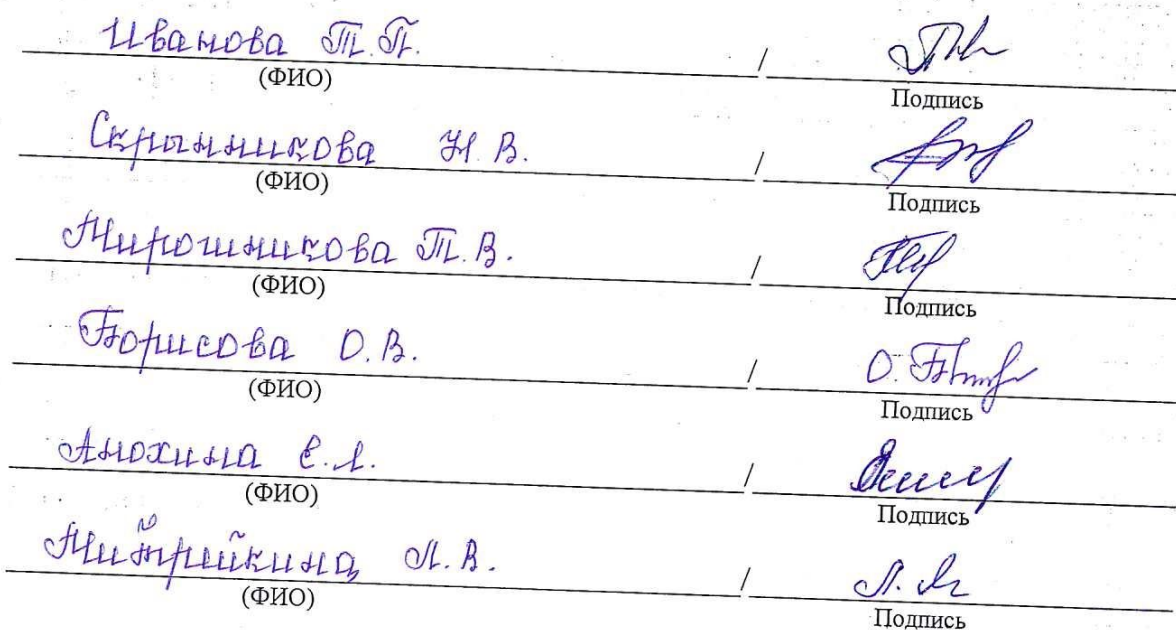 Иванова Т.П. /
(ФИО) Подпись
Скрынникова Н.В. /
(ФИО) Подпись
Мирошникова Т.В. /
(ФИО) Подпись
Борисова О.В. / О.
(ФИО) Подпись
Анохина Е.А. /
(ФИО) Подпись
Митрийкина Л.В. / Л.
(ФИО) Подпись